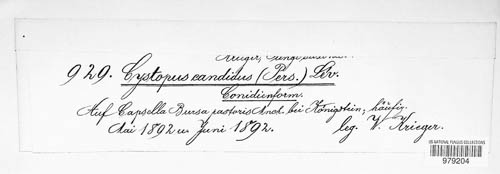 Krieger, Fungi saxonici
929. Cystopus candidus (Pers.) Lév.
Conidienform.
Auf Capsella Bursa pastoris bei Königstein, häufig.
Mai 1892 u. Juni 1892. leg. W. Krieger.
US NATIONAL FUNGUS COLLECTIONS
979204